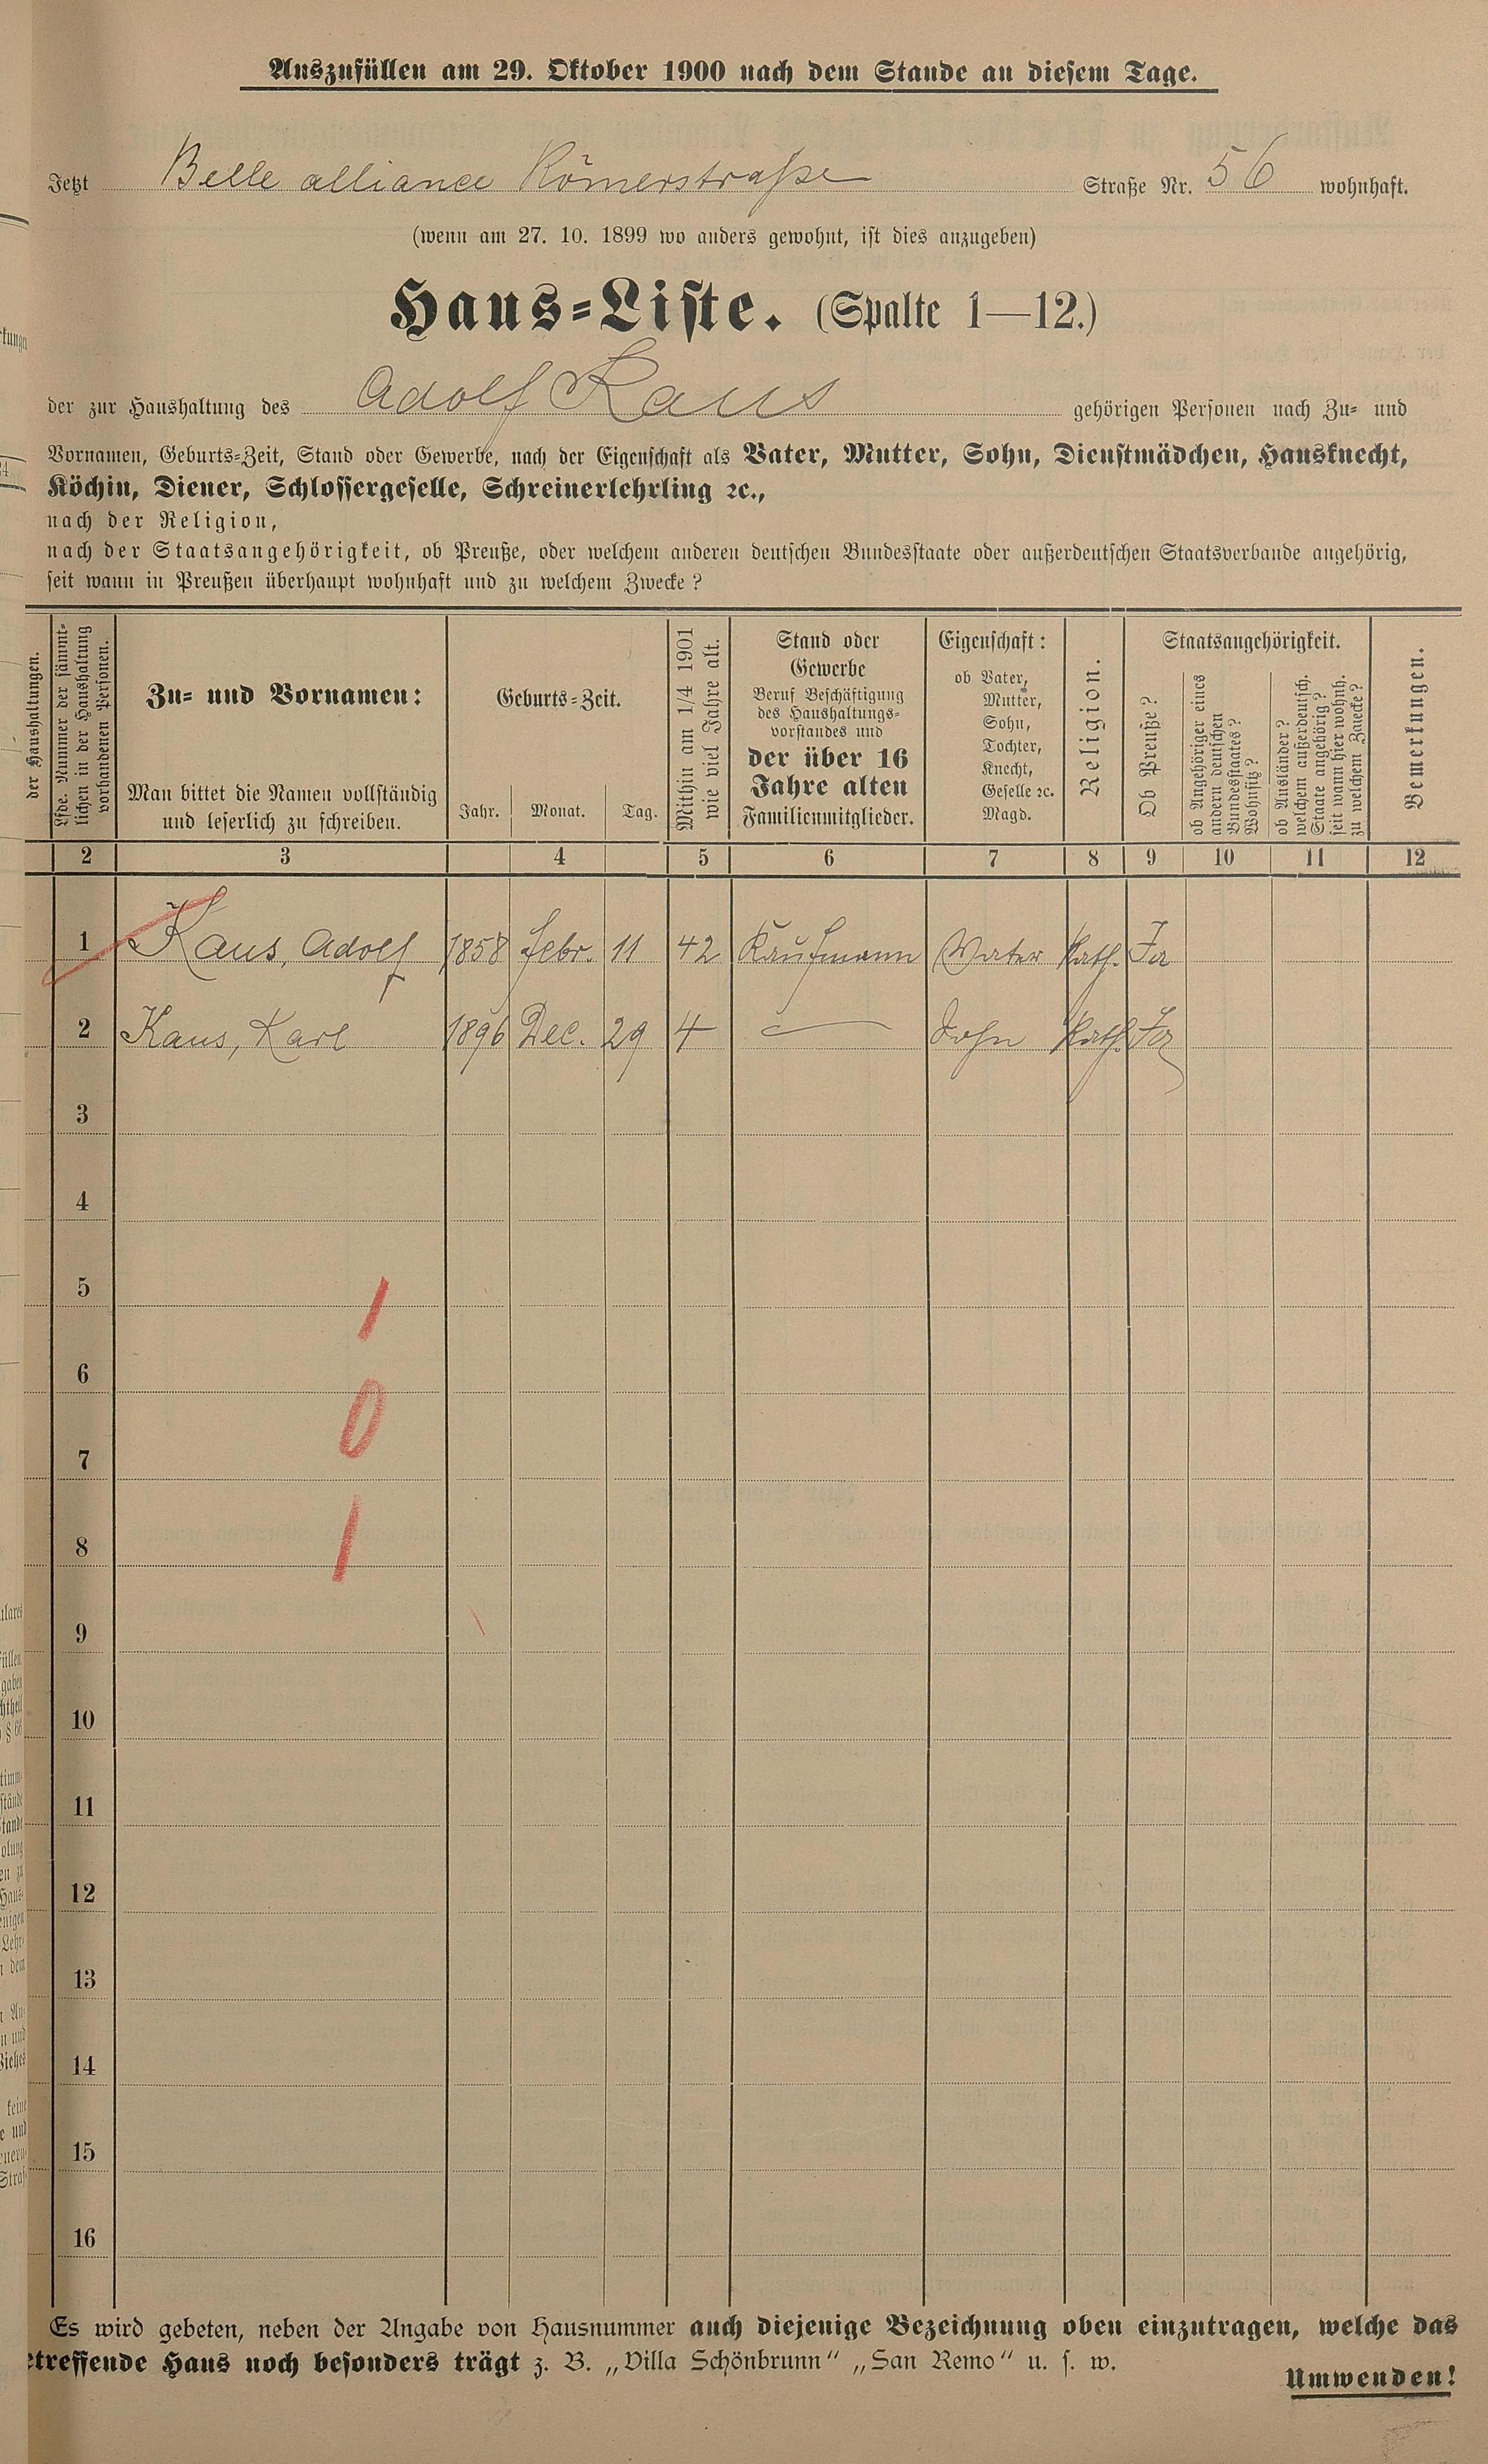 Auszufüllen am 29. Oktober 1900 nach dem Stande an diesem Tage.
Jetzt Belle alliance Römerstraße Straße Nr. 56 wohnhaft.
(wenn am 27. 10. 1899 wo anders gewohnt, ist dies anzugeben)
Haus-Liste. (Spalte 1—12.)
der zur Haushaltung des Adolf Kaus gehörigen Personen nach Zu- und
Vornamen, Geburts-Zeit, Stand oder Gewerbe, nach der Eigenschaft als Vater, Mutter, Sohn, Dienstmädchen, Hausknecht,
Köchin, Diener, Schlossergeselle, Schreinerlehrling ꝛc.,
nach der Religion,
nach der Staatsangehörigkeit, ob Preuße, oder welchem anderen deutschen Bundesstaate oder außerdeutschen Staatsverbande angehörig,
seit wann in Preußen überhaupt wohnhaft und zu welchem Zwecke?
der Haushaltungen.
Lfde. Nummer der sämmt-
lichen in der Haushaltung
vorhandenen Personen.
Zu- und Vornamen:
Man bittet die Namen vollständig
und leserlich zu schreiben.
Geburts-Zeit.
Jahr. Monat. Tag.
Mithin am 1/4 1901
wie viel Jahre alt.
Stand oder
Gewerbe
Beruf Beschäftigung
des Haushaltungs-
vorstandes und
der über 16
Jahre alten
Familienmitglieder.
Eigenschaft:
ob Vater,
Mutter,
Sohn,
Tochter,
Knecht,
Geselle ꝛc.
Magd.
Religion.
Staatsangehörigkeit.
Ob Preuße?
ob Angehöriger eines
andern deutschen
Bundesstaates?
Wohnsitz?
ob Ausländer?
welchem außerdeutsch.
Staate angehörig?
seit wann hier wohnh.
zu welchem Zwecke?
Bemerkungen.
2 3 4 5 6 7 8 9 10 11 12
1 Kaus, Adolf 1858 Febr. 11 42 Kaufmann Vater Kath. Ja
2 Kaus, Karl 1896 Dec. 29 4 — Sohn Kath. Ja
3
4
5
1
6
0
7
1
8
9
10
11
12
13
14
15
16
Es wird gebeten, neben der Angabe von Hausnummer auch diejenige Bezeichnung oben einzutragen, welche das
etreffende Haus noch besonders trägt z. B. „Villa Schönbrunn“ „San Remo“ u. s. w.
Umwenden!